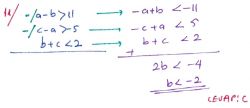 11/ -/a-b>11 → -a+b <-11
-/c-a>-5 → -c+a < 5
b+c<2 → b+c <2
+
2b <-4
b<-2
CEVAP:C